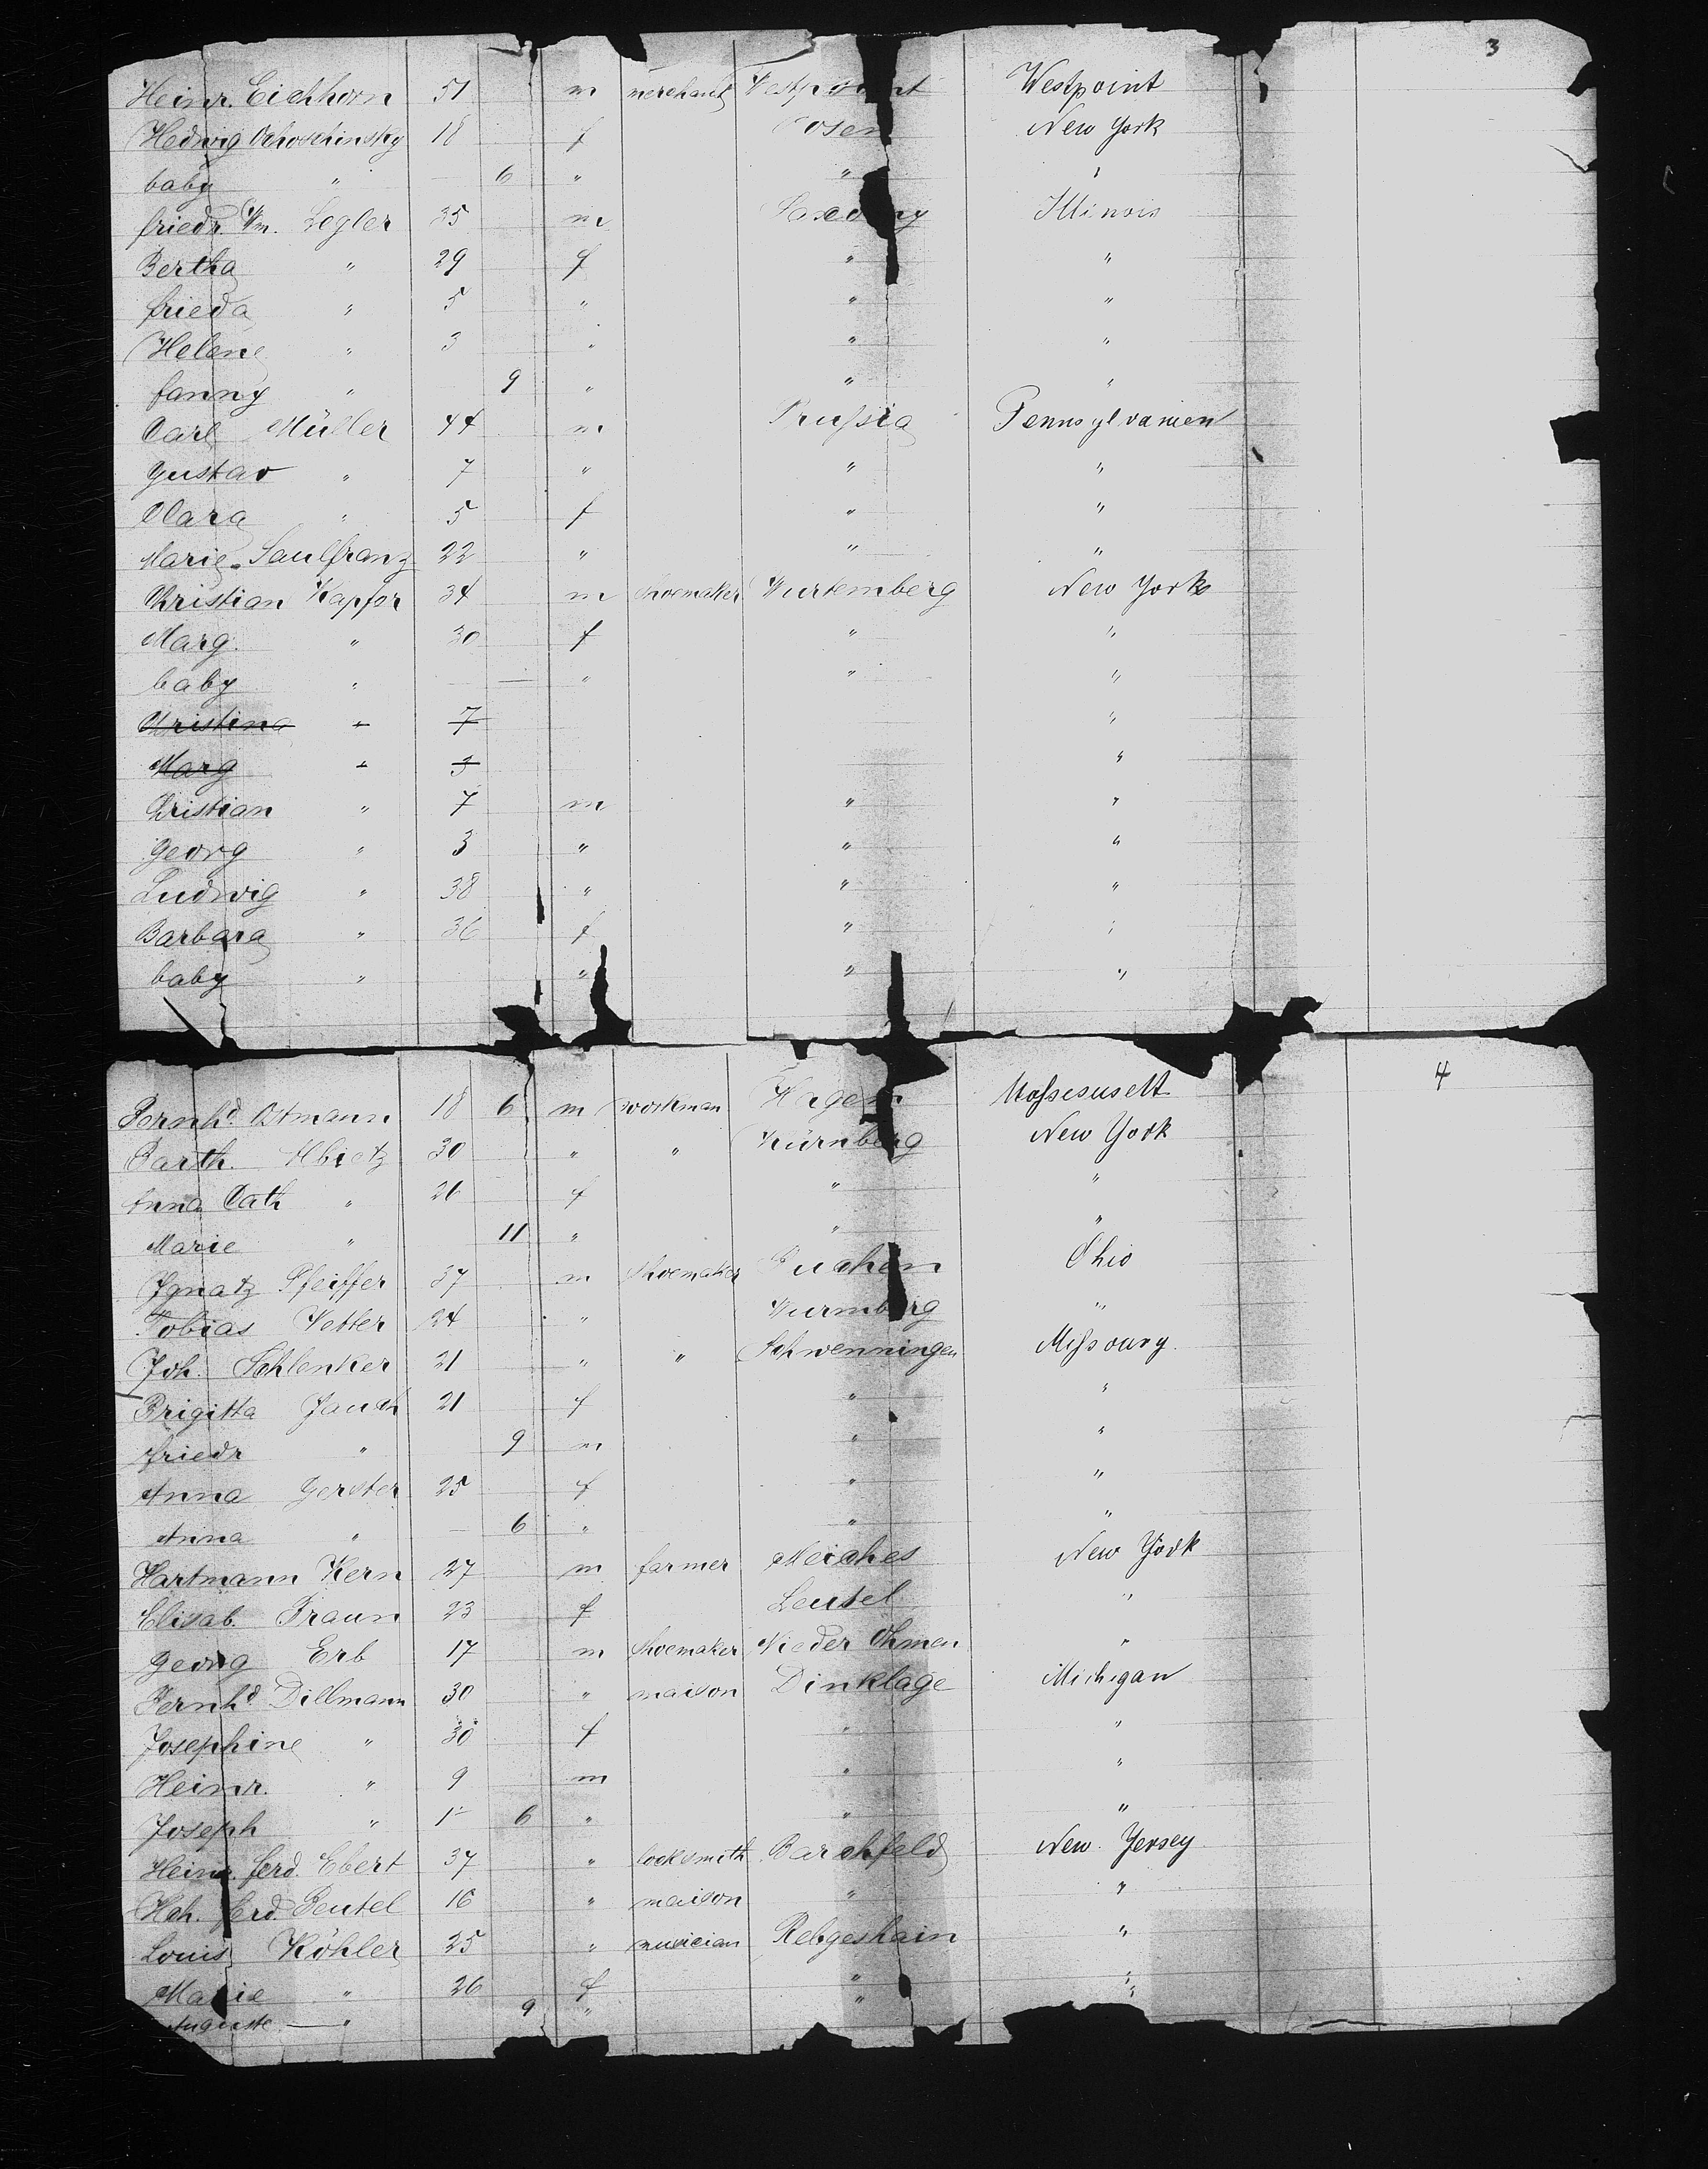 3
Heinr. Eichhorn 51 m merchant Westpoint Westpoint
Hedwig 18 f Posen New York
baby " — 6 " " "
friedr. Wm. Legler 35 m Saxony Illinois
Bertha " 29 f " "
frieda " 5 " " "
Helene " 3 " " "
fanny " — 9 " " "
Carl Müller 44 m Prussia Pennsylvanien
Gustav " 7 " " "
Clara " 5 f " "
Marie Saulfranz 22 " " "
Christian Kapfor 34 m Shoemaker Wurtemberg New York
Marg. " 30 f " "
baby " — — " " "
Christina " 7 "
Marg " 3 "
Christian " 7 m " "
Georg " 3 " " "
Ludwig " 38 " " "
Barbara " 36 f " "
baby " " " "
4
Bernhd. Ostmann 18 6 m workman Hagen Massesusett
Barth. 30 " " Nürnberg New York
Anna Cath " 26 f " "
Marie " 11 " " "
Ignatz Pfeiffer 37 m Shoemaker Ohio
Tobias Vetter 24 " Wurmberg "
Joh. Schlenker 21 " " Schwenningen Missoury
Brigitta Jauch 21 f " "
friedr " 9 m " "
Anna Gerster 25 f " "
Anna " — 6 " " "
Hartmann Kern 27 m farmer Meiches New York
Elisab. Fraun 23 f Leusel "
Georg Erb 17 m Shoemaker Nieder Ohmen "
Bernhd Dillmann 30 " maison Dinklage Michigan
Josephine " 30 f " "
Heinr. " 9 m " "
Joseph " 1 6 " " "
Heinr. ferd. Ebert 37 " locksmith Barchfeld New Jersey
Hch. ferd. Beutel 16 " maison " "
Louis Köhler 25 " musician Rebgeshain "
Marie " 26 f " "
Auguste — " 9 " " "